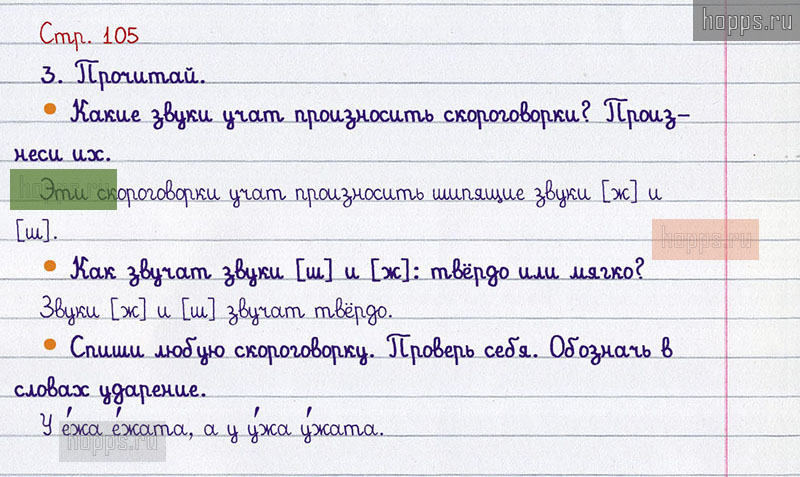 hopps.ru
Стр. 105
3. Прочитай.
• Какие звуки учат произносить скороговорки? Произ-
неси их.
hopps.ru
Эти скороговорки учат произносить шипящие звуки [ж] и
[ш].
hopps.ru
• Как звучат звуки [ш] и [ж]: твёрдо или мягко?
Звуки [ж] и [ш] звучат твёрдо.
• Спиши любую скороговорку. Проверь себя. Обозначь в
словах ударение.
У е́жа е́жата, а у у́жа у́жата.
hopps.ru